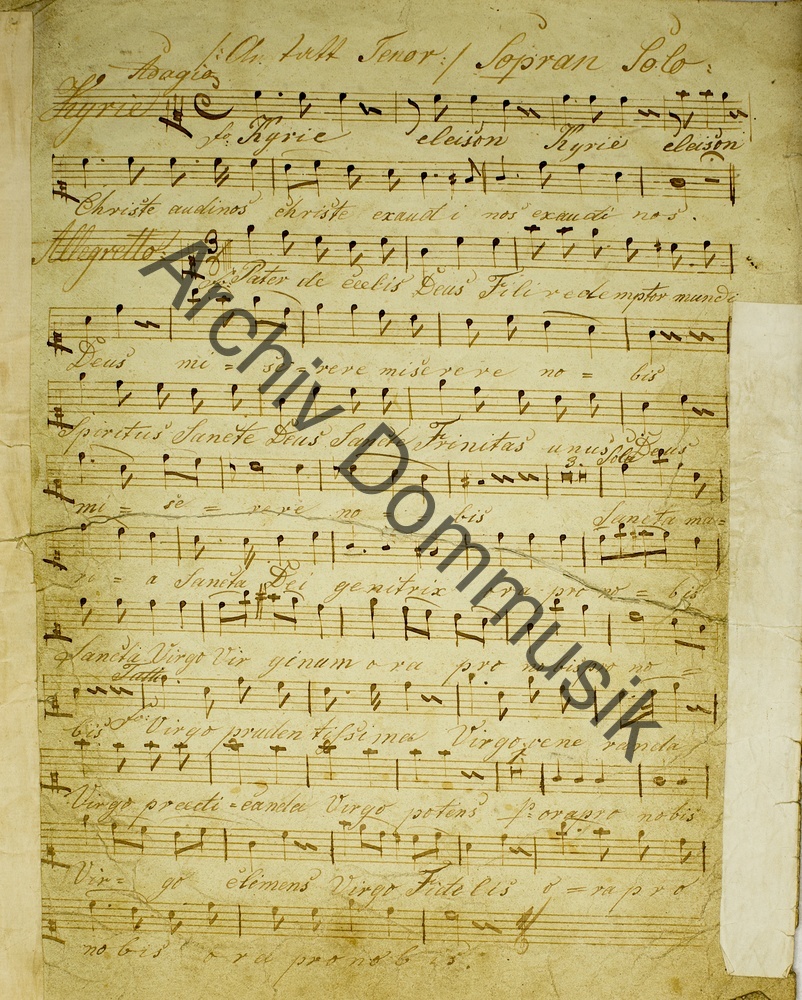 /: An statt Tenor :/ Sopran Solo :
Adagio
Kyrie
fo: Kyrie eleison Kyrie eleison
Christe audinos christe exaudi nos exaudi nos.
Allegretto
Pater de Deus Fili redemptor mundi
Deus mi = se = rere miserere no = bis
Spiritus Sancte Deus Sancta Trinitas unus Deus
3. Solo
mi = se = rere no = bis Sancta ma =
ri = a Sancta Dei genitrix ora pro no = bis
Sancta Virgo Virginum ora pro nobis pro no =
Tutti
bis fo: Virgo prudentissima Virgo vene randa
Virgo praedi = canda Virgo potens po: ora pro nobis
Vir = go clemens Virgo Fidelis o = ra pro
nobis ora pro nobis.
Archiv Dommusik